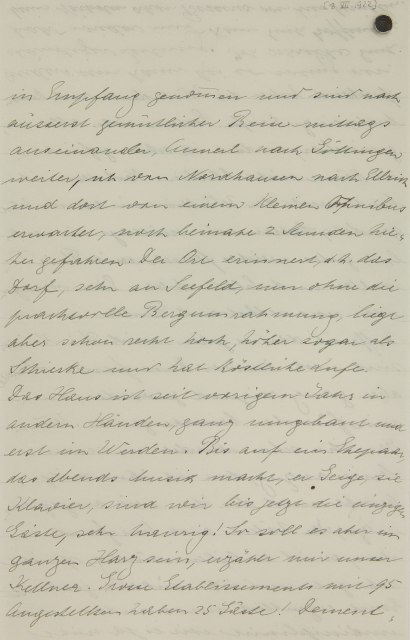 in Empfang genommen und sind nach
äusserst gemütlicher Reise mittags
auseinander, Annerl nach Göttingen
weiter, ich von Nordhausen nach Ellrich
und dort von einem kleinen Omnibus
erwartet, noch beinahe 2 Stunden hie-
her gefahren. Der Ort erinnert, d.h. das
Dorf, sehr an Seefeld, nur ohne die
prachtvolle Bergumrahmung, liegt
aber schon recht hoch, höher sogar als
Schierke und hat köstliche Luft.
Das Haus ist seit vorigem Jahr in
andern Händen, ganz umgebaut und
erst im Werden. Bis auf ein Ehepaar,
das abends Musik macht, er Geige, sie
Klavier, sind wir bis jetzt die einzigen
Gäste, sehr traurig! So soll es aber im
ganzen Harz sein, erzählt mir unser
Kellner. Grosse Etablissements mit 95
Angestellten haben 25 Gäste! Dement-